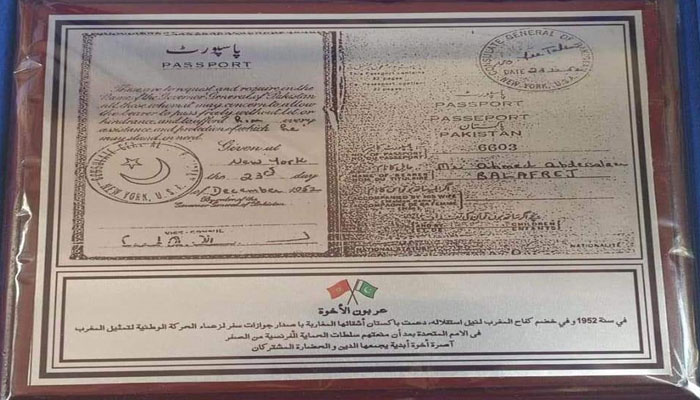 پاسپورٹ
PASSPORT
These are to request and require in the
Name of the Governor General of Pakistan
all those whom it may concern to allow
the bearer to pass freely without let or
hindrance, and to afford him every
assistance and protection of which he
may stand in need.
Given at
New York
the 23rd day
of December 1952
By order of the
Governor General of Pakistan
VICE-CONSUL
NEW YORK, U.S.A.
CONSULATE GENERAL OF
DATE
NEW YORK, U.S.A.
This Passport contains
32 pages
PASSPORT
پاسپورٹ
PASSPORT
پاکستان
PAKISTAN
6603
NO. OF PASSPORT
Mr. Ahmed Abdesslam
NAME OF BEARER
BALAFREJ
CHILDREN
NATIONALITE
عربون الأخوة
في سنة 1952 وفي خضم كفاح المغرب لنيل استقلاله، دعمت باكستان أشقائها المغاربة باصدار جوازات سفر لزعماء الحركة الوطنية لتمثيل المغرب
في الامم المتحدة بعد أن منعتهم سلطات الحماية الفرنسية من السفر
آصرة أخوة أبدية يجمعها الدين والحضارة المشتركان